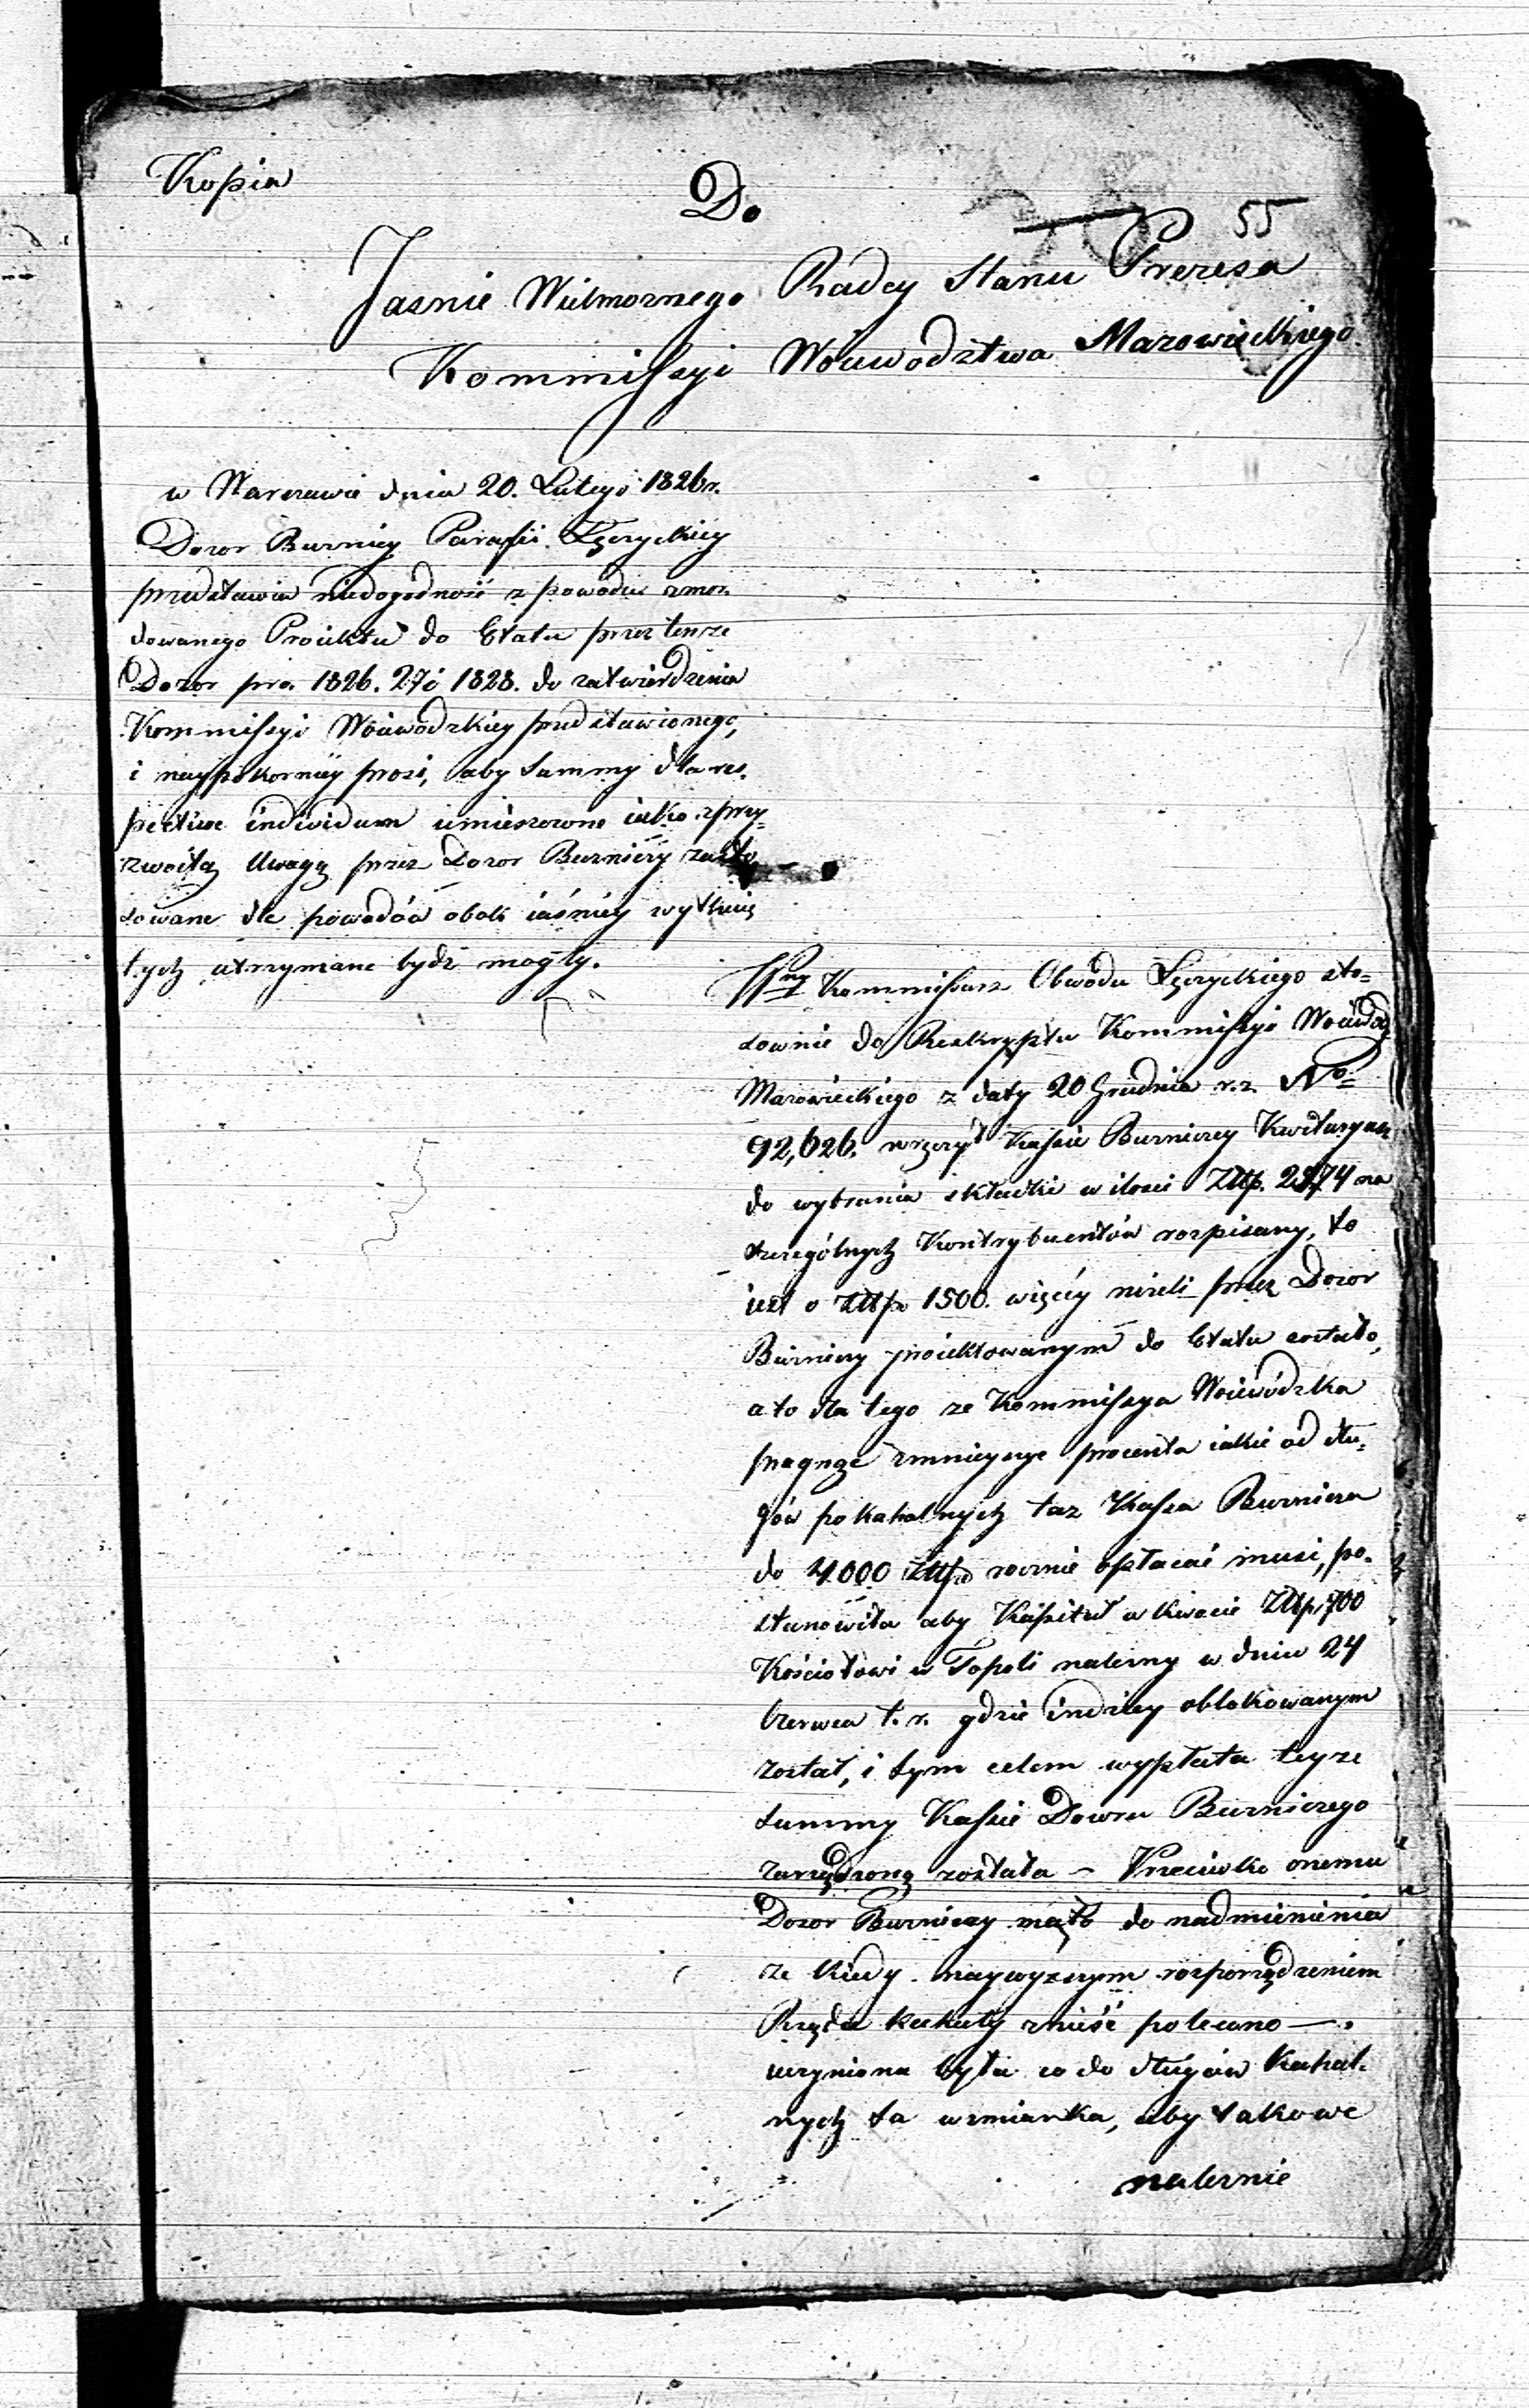 Kopia
Do
55
Jasnie Wielmoznego Radcy Stanu Prezesa
Kommissyi Woiewodztwa Mazowieckiego
w Warszawie dnia 20. Lutego 1826 r.
Dozor Bozniczy Parafii Łęczyckiey
przedstawia niedogodność z powodu zmo=
dowanego Proiektu do Etatu przez tenze
Dozor pro. 1826. 27 i 1828. do zatwierdzenia
Kommissyi Woiewodzkiey przedstawionego,
i naypokorniey prosi, aby Summy dla res=
pective individuum umieszczone iako z przy=
zwoitą Uwagą przez Dozor Bozniczy zasto
sowane dla powodów obok iaśniey wytknię
tych utrzymane bydz mogły.
Kommissarz Obwodu Łęczyckiego sto=
sownie do Reskryptu Kommissyi Woiewodz
Mazowieckiego z daty 20 Grudnia r. z. No
92,626. wręczył Kassie Bozniczey Kwitaryusz
do wybrania składki w ilosci Złłp. na
szczególnych Kontrybuentów rozpisany, to
iest o Złłp. 1500. więcéy nizeli przez Dozor
Bozniczy proiektowanym do Etatu zostało,
a to dla tego ze Kommissya Woiewódzka
pragnąc zmnieyszyć procenta iakie od dłu=
gów pokahalnych taz Kassa Boznicza
do 4000 Złłp. rocznie opłacać musi, po=
stanowiła aby Kapitał w kwocie Złłp. 700
Kościołowi w Topoli nalezny w dniu 24
Czerwca t. r. gdzie indziey oblokowanym
został, i tym celem wypłata teyze
Summy Kassie Dozoru Bozniczego
zarządzoną została – Przeciwko onemu
Dozor Bozniczy ma to do nadmienienia
ze kiedy naywyzszym rozporządzeniem
Rządu kahały znieść polecono —
uczyniona była co do długów Kahal=
nych ta wzmianka, aby takowe
naleznie